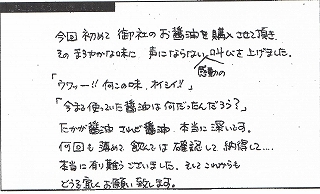 今回初めて御社のお醤油を購入させて頂き
そのまろやかな味に声にならない感動の叫びを上げました。
「ウワァー!!何この味、オイシイ!!」
「今まで使っていた醤油は何だったんだろう?」
たかが醤油されど醤油、本当に深いです。
何回も薄めて飲んでは確認して、納得して....
本当に有り難うございました。そしてこれからも
どうぞ宜しくお願い致します。